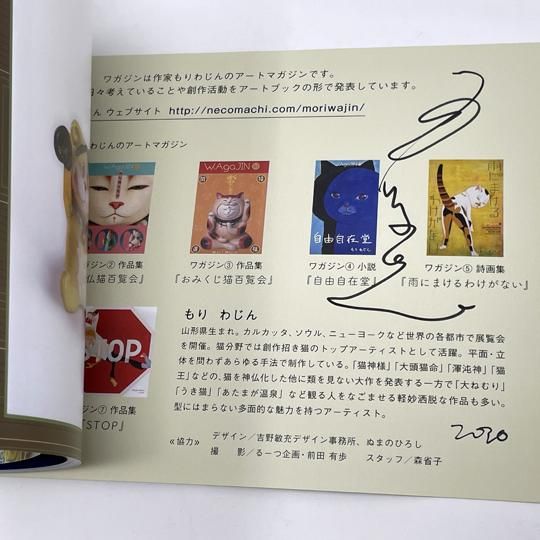 ワガジンは作家もりわじんのアートマガジンです。
々考えていることや創作活動をアートブックの形で発表しています。
ん ウェブサイト http://necomachi.com/moriwajin/
わじんのアートマガジン
WAgaJIN
自由自在堂
もりわじん
雨にまける
わけがない
STOP
ガジン② 作品集
仏猫百覧会』
ワガジン③ 作品集
『おみくじ猫百覧会』
ワガジン④ 小説
『自由自在堂』
ワガジン⑤ 詩画集
『雨にまけるわけがない』
ジン⑦ 作品集
STOP』
もり わじん
山形県生まれ。カルカッタ、ソウル、ニューヨークなど世界の各都市で展覧会
を開催。猫分野では創作招き猫のトップアーティストとして活躍。平面・立
体を問わずあらゆる手法で制作している。「猫神様」「大頭猫命」「渾沌神」「猫
王」などの、猫を神仏化した他に類を見ない大作を発表する一方で「大ねむり」
「うき猫」「あたまが温泉」など観る人をなごませる軽妙洒脱な作品も多い。
型にはまらない多面的な魅力を持つアーティスト。
≪協力≫ デザイン／吉野敏充デザイン事務所、ぬまのひろし
撮 影／るーつ企画・前田 有歩 スタッフ／森省子
2020